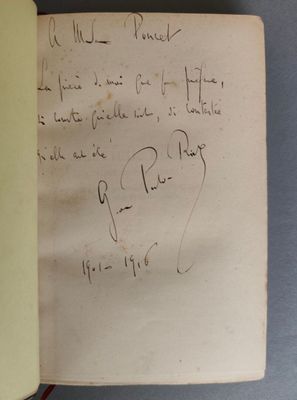 A Madame Poncet
La pièce de moi que je préfère,
si courte qu'elle soit, si contestée
qu'elle ait été
G. de Porto-Riche
1901-1916